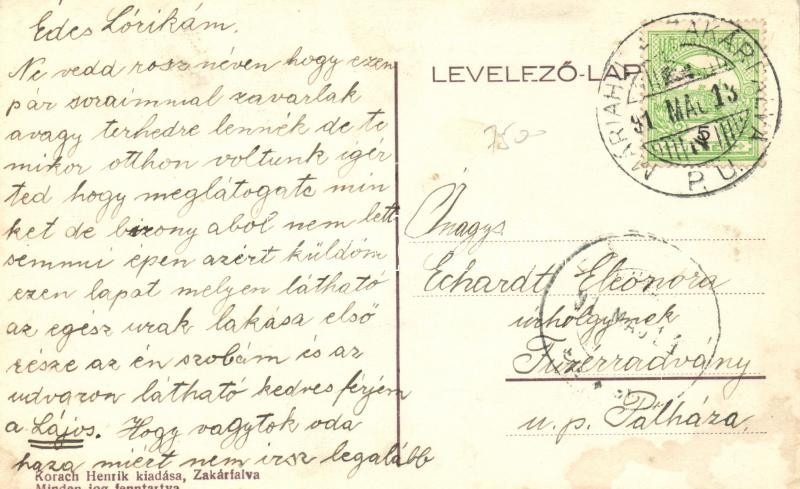 Édes Lórikám.
Ne vedd rosz néven hogy ezen
pár soraimmal zavarlak
avagy terhedre lennék de te
mikor otthon voltunk igér
ted hogy meglátogatc min
ket de bizony abol nem lett
semmi épen azért küldöm
ezen lapat melyen látható
az egész urak lakása első
része az én szobám és az
udvaron látható kedves férjem
a Lájos. Hogy vagytok oda
haza miért nem irsz legalább
Korach Henrik kiadása, Zakárfalva
Minden jog fenntartva
LEVELEZŐ-LAP
P. U.
5
7500
Őnagys
Echardt Eleonora
úrhölgynek
Fűzérradvány
u. p. Pálháza.